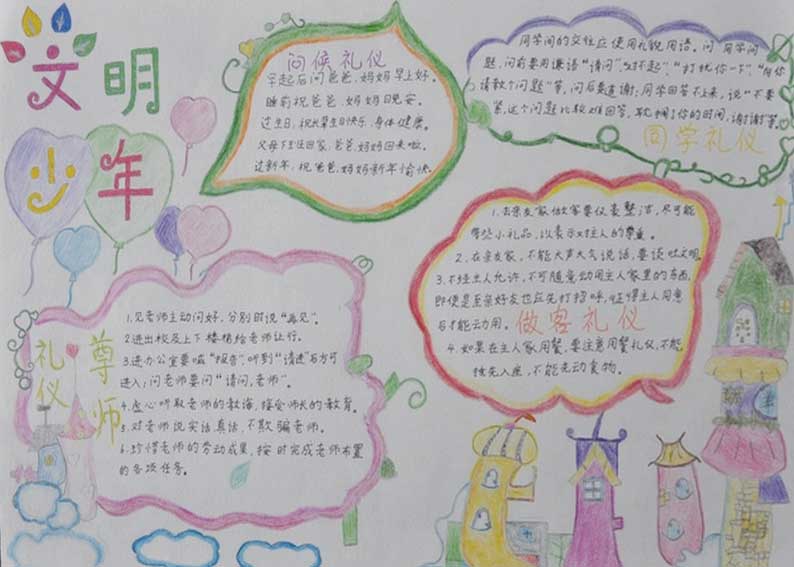 文明
少年
问候礼仪
早起后问爸爸、妈妈早上好。
睡前祝爸爸、妈妈晚安。
过生日,祝长辈生日快乐,身体健康。
父母下班回家,爸爸、妈妈回来啦。
过新年,祝爸爸、妈妈新年愉快。
同学间的交往应使用礼貌用语。问同学问
题,问前要用谦语“请问”、“对不起”、“打扰你一下”、
请教个问题”等,问后要道谢;同学回答不上来,说“不要
紧,这个问题比较难回答,耽搁了你的时间,谢谢!”等。
同学礼仪
1.去亲友家做客要仪表整洁,尽可能
带些小礼品,以表示对主人的尊重。
2.在亲友家,不能大声大气说话,要谈吐文明。
3.不经主人允许,不可随意动用主人家里的东西,
即使是至亲好友也应先打招呼,征得主人同意
后才能动用。
做客礼仪
4.如果在主人家用餐,要注意用餐礼仪,不能
抢先入座,不能先动食物。
尊师
礼仪
1.见老师主动问好,分别时说“再见”。
2.进出校及上下楼梯给老师让行。
3.进办公室要喊“报告”,听到“请进”后方可
进入;问老师要问“请问,老师”。
4.虚心听取老师的教诲,接受师长的教育。
5.对老师说实话真话,不欺骗老师。
6.珍惜老师的劳动成果,按时完成老师布置
的各项任务。